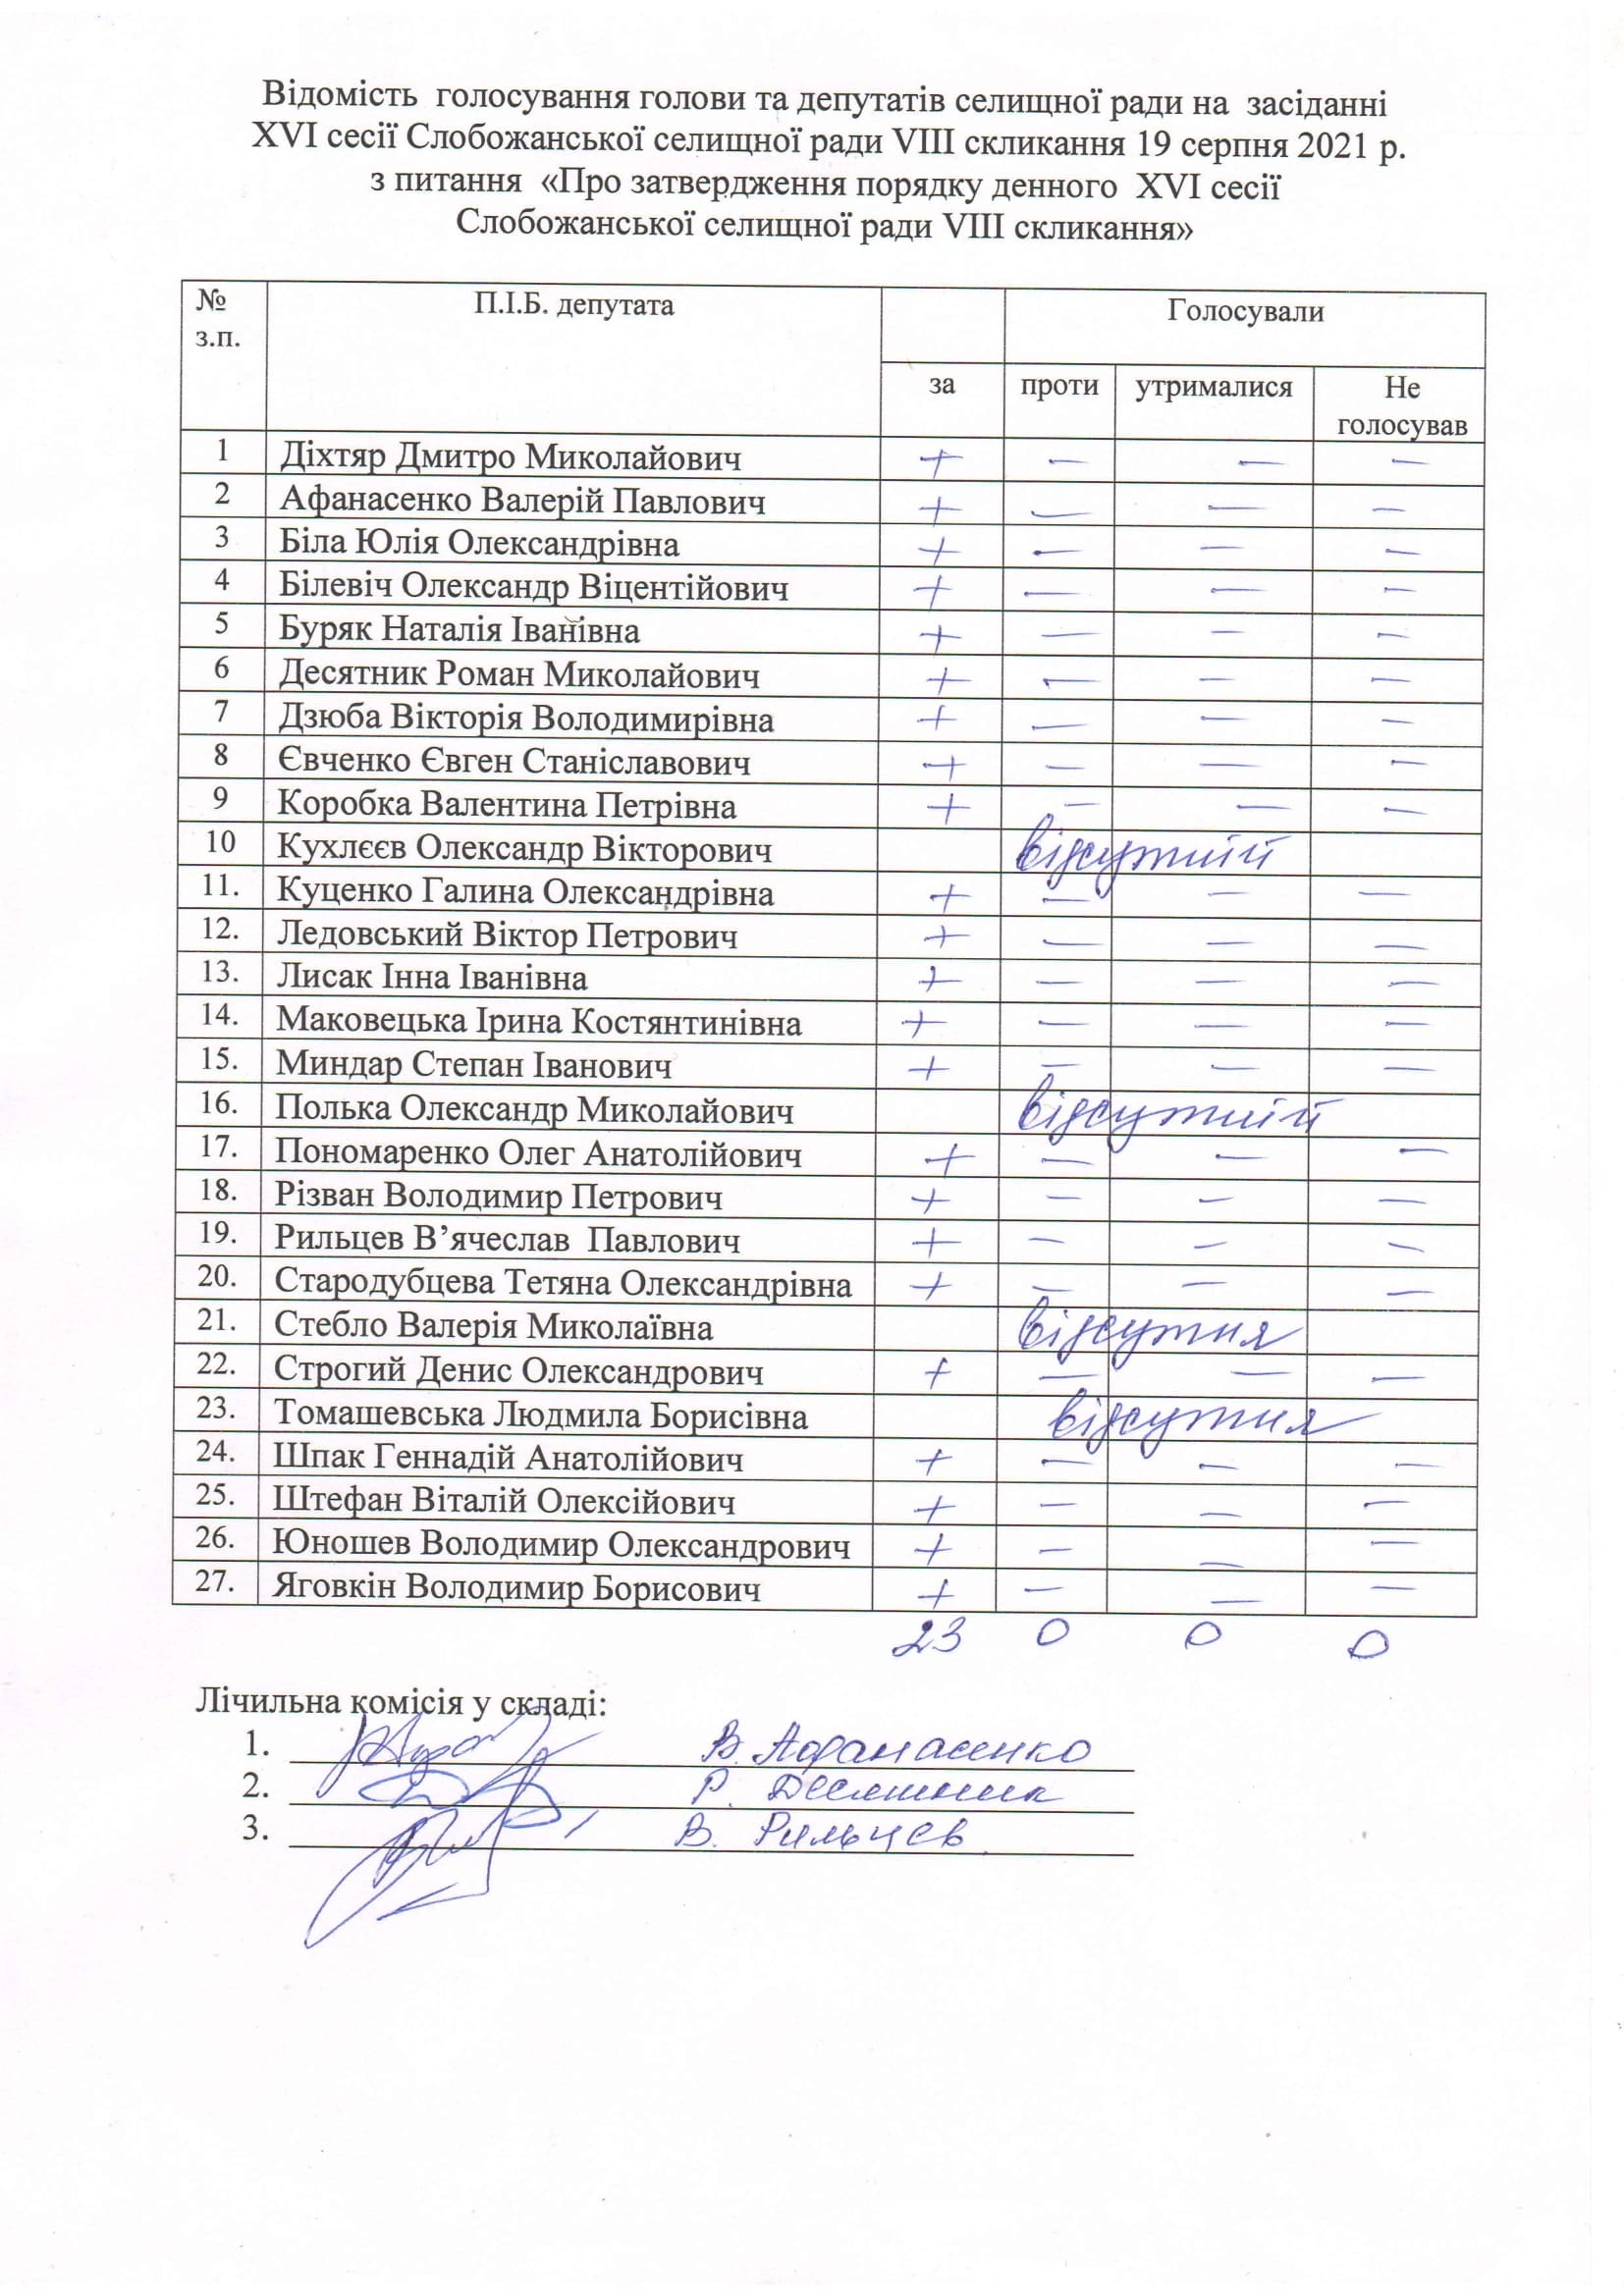 Відомість голосування голови та депутатів селищної ради на засіданні
XVI сесії Слобожанської селищної ради VIII скликання 19 серпня 2021 р.
з питання «Про затвердження порядку денного XVI сесії
Слобожанської селищної ради VIII скликання»
№ П.І.Б. депутата Голосували
з.п.
за проти утрималися Не
голосував
1 Діхтяр Дмитро Миколайович + – – –
2 Афанасенко Валерій Павлович + – – –
3 Біла Юлія Олександрівна + – – –
4 Білевіч Олександр Віцентійович + – – –
5 Буряк Наталія Іванівна + – – –
6 Десятник Роман Миколайович + – – –
7 Дзюба Вікторія Володимирівна + – – –
8 Євченко Євген Станіславович + – – –
9 Коробка Валентина Петрівна + – – –
10 Кухлєєв Олександр Вікторович відсутній
11. Куценко Галина Олександрівна + – – –
12. Ледовський Віктор Петрович + – – –
13. Лисак Інна Іванівна + – – –
14. Маковецька Ірина Костянтинівна + – – –
15. Миндар Степан Іванович + – – –
16. Полька Олександр Миколайович відсутній
17. Пономаренко Олег Анатолійович + – – –
18. Різван Володимир Петрович + – – –
19. Рильцев В’ячеслав Павлович + – – –
20. Стародубцева Тетяна Олександрівна + – – –
21. Стебло Валерія Миколаївна відсутня
22. Строгий Денис Олександрович + – – –
23. Томашевська Людмила Борисівна відсутня
24. Шпак Геннадій Анатолійович + – – –
25. Штефан Віталій Олексійович + – – –
26. Юношев Володимир Олександрович + – – –
27. Яговкін Володимир Борисович + – – –
23 0 0 0
Лічильна комісія у складі:
1. В. Афанасенко
2. Р. Десятник
3. В. Рильцев